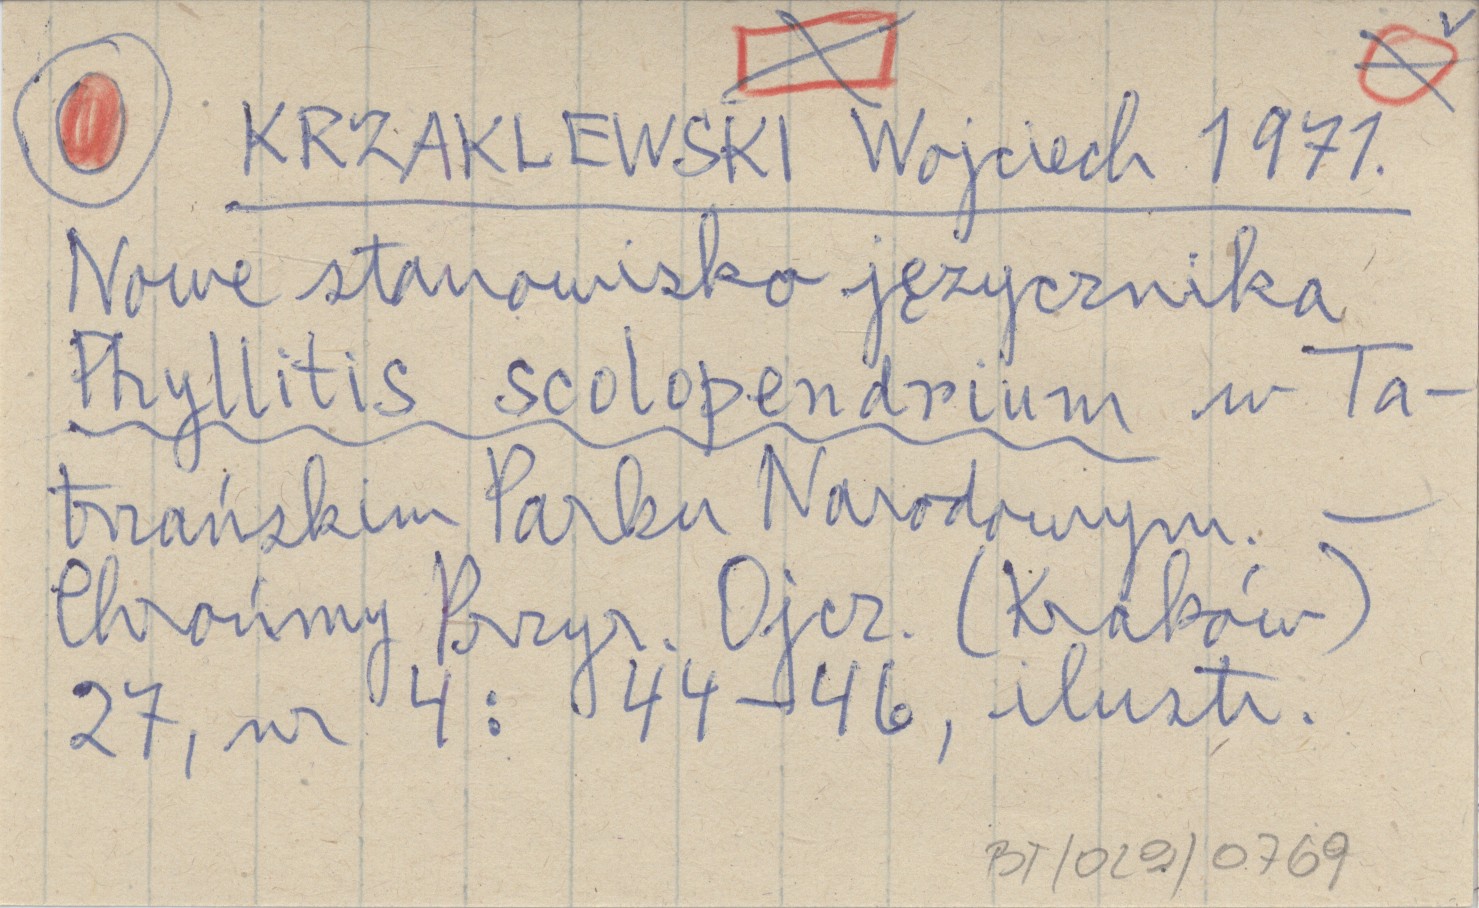 KRZAKLEWSKI Wojciech 1971.
Nowe stanowisko języcznika
Phyllitis scolopendrium w Ta-
trzańskim Parku Narodowym. —
Chrońmy Przyr. Ojcz. (Kraków)
27, nr 4: 44-46, ilustr.
BT/029/0769